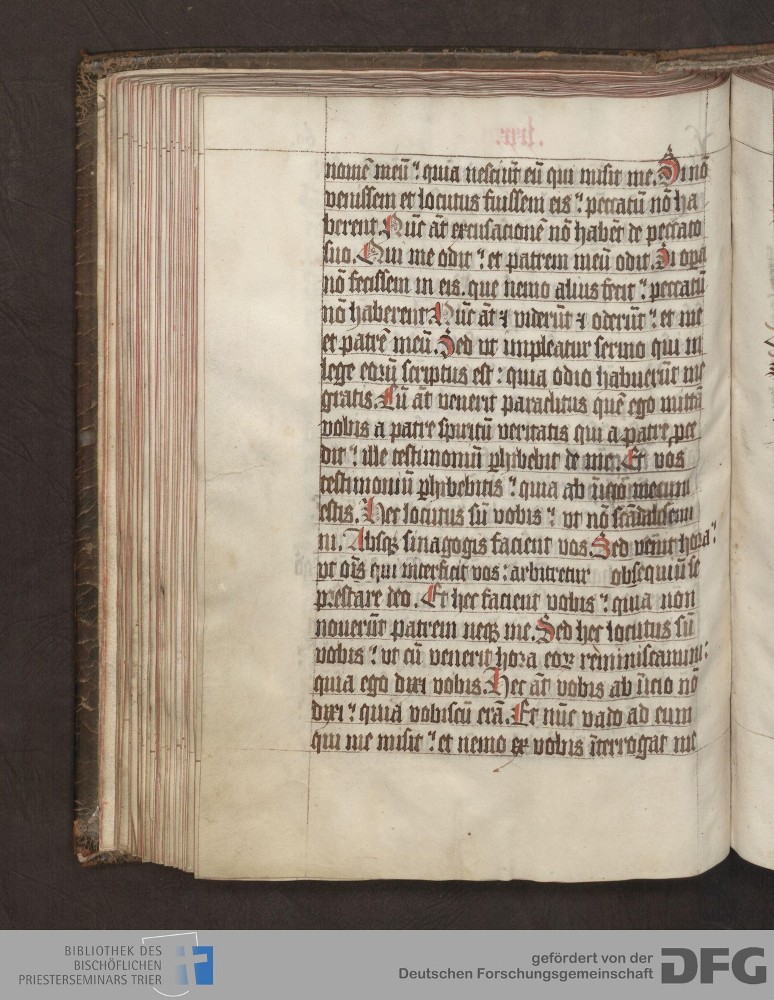 nomē meū? quia nesciūt eū qui misit me. Si nō
venissem et locutus fuissem eis? peccatū nō ha
berent. Nūc āt excusacionē nō habēt de peccato
suo. Qui me odit? et patrem meū odit. Si oꝑa
nō fecissem in eis. que nemo alius fecit? peccatū
nō haberent. Nūc āt ⁊ viderūt ⁊ oderūt? et me
et patrē meū. Sed ut impleatur sermo qui in
lege eorū scriptus est: quia odio habuerūt me
gratis. Cū āt venerit paraclitus quē ego mittā
vobis a patre spiritū veritatis qui a patre ꝓce
dit? ille testimoniū ꝑhibebit de me. Et vos
testimoniū ꝑhibebitis? quia ab īicio mecum
estis. Hec locutus sū vobis? ut nō scādalisemi
ni. Absqꝫ sinagogis facient vos. Sed venit hora?
ut oīs qui interficit vos: arbitretur obsequiū se
prestare deo. Et hec facient vobis? quia non
noverūt patrem neqꝫ me. Sed hec locutus sū
vobis? ut cū venerit hora eoꝝ reminiscamini:
quia ego dixi vobis. Hec āt vobis ab īicio nō
dixi? quia vobiscū erā. Et nūc vado ad eum
qui me misit? et nemo ex vobis īterrogat me
BIBLIOTHEK DES
BISCHÖFLICHEN
PRIESTERSEMINARS TRIER
gefördert von der
Deutschen Forschungsgemeinschaft
DFG